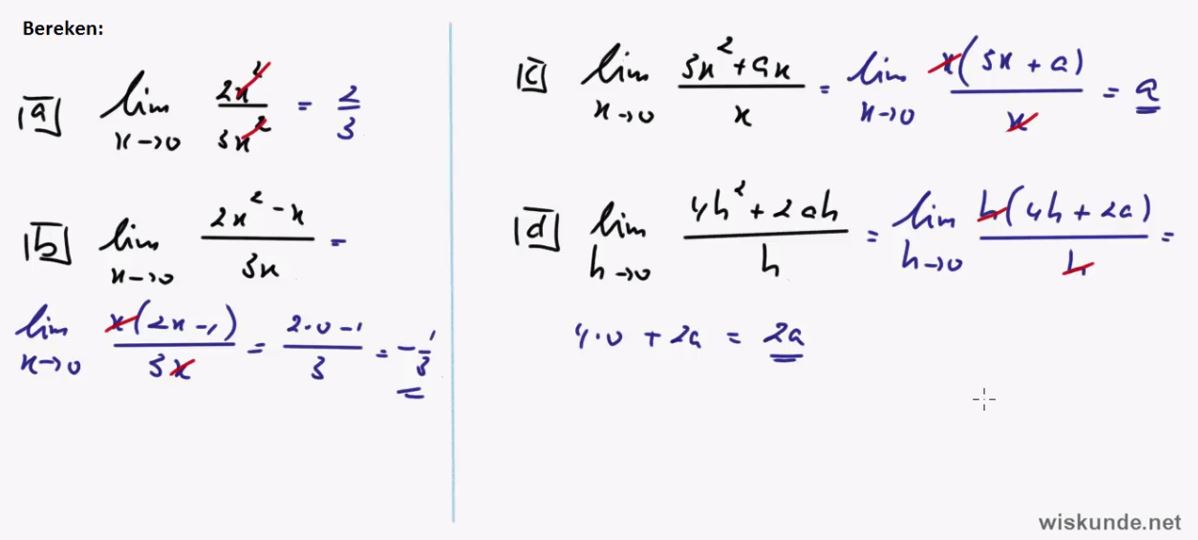 Bereken:
a lim x→0 2x²/3x² = 2/3
b lim x→0 (2x² - x)/3x =
lim x→0 x(2x - 1)/3x = (2·0 - 1)/3 = -1/3
c lim x→0 (3x² + ax)/x = lim x→0 x(3x + a)/x = a
d lim h→0 (4h² + 2ah)/h = lim h→0 h(4h + 2a)/h =
4·0 + 2a = 2a
wiskunde.net